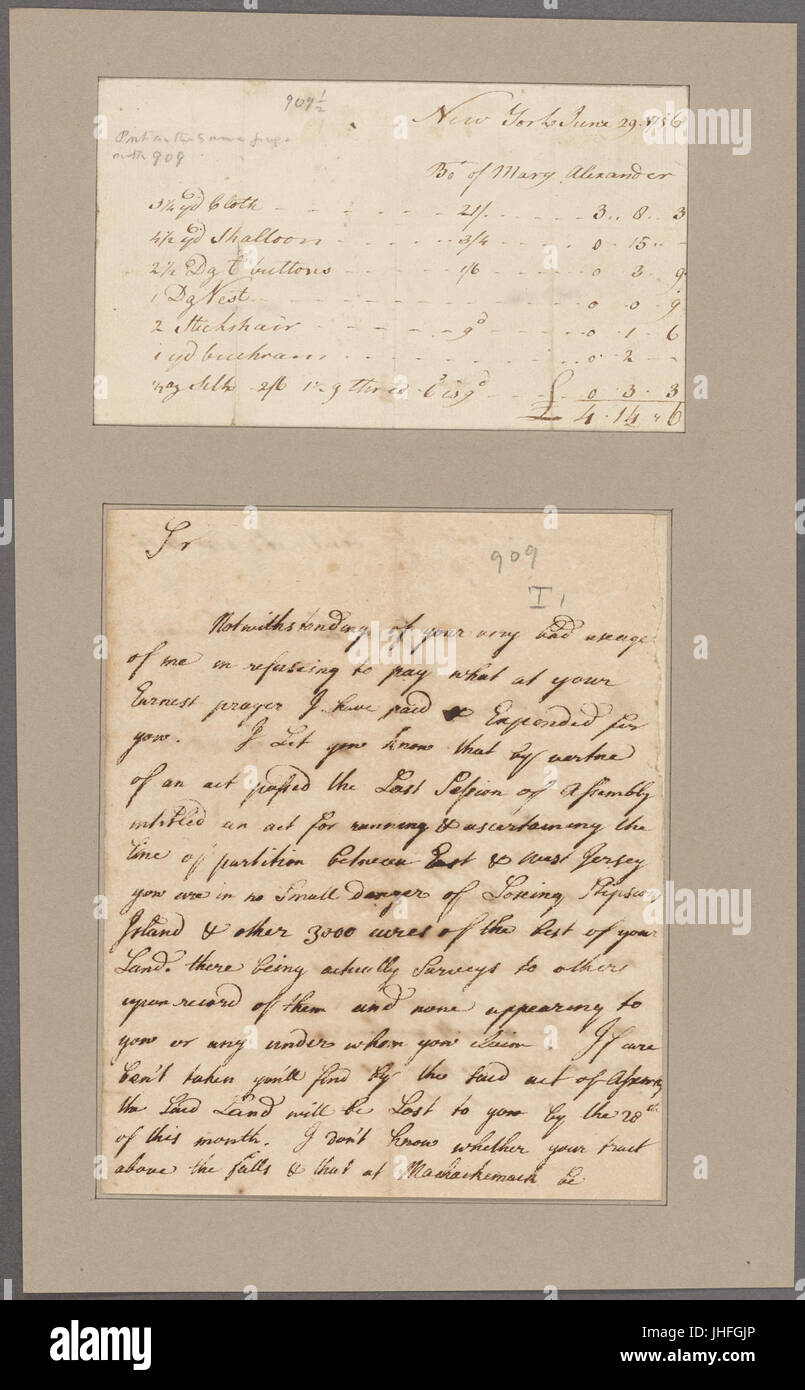 909½
Put on the same page
with 909
New York June 29 1756
Bot of Mary Alexander
3¼ yd Cloth 21/ 3 .. 8 .. 3
4½ yd Shalloon 3/4 0 .. 15 .. -
2½ Dz Ct buttons 1/6 0 .. 3 .. 9
1 Dz Vest 0 .. 0 .. 9
2 Sticks hair 9d 0 .. 1 .. 6
1 yd buckram 0 .. 2 .. -
Silk 2/6 thred 9d 0 .. 3 .. 3
£ 4 .. 14 .. 6
Sr
909
I,
Notwithstanding of your very bad useage
of me in refuseing to pay what at your
Earnest prayer I have paid & Expended for
yow. I Let yow know that by vertue
of an act passed the Last Session of Assembly
intitled an act for running & ascertaining the
line of partition between East & West Jersey
yow are in no Small danger of Loseing Shipsons
Island & other 3000 acres of the best of your
Land. there being actually Surveys to others
upon record of them and none appearing to
yow or any under whom yow claim. If care
ben't taken you'll find by the said act of Assembly
the said Land will be Lost to yow by the 28th
of this month. I don't know whether your tract
above the falls & that at Machackemack be
alamy stock photo
JHFGJP
www.alamy.com